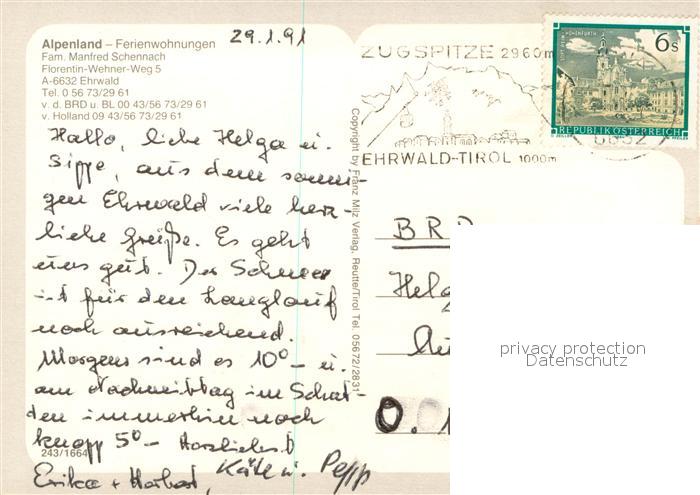 29.1.91
Alpenland – Ferienwohnungen
Fam. Manfred Schennach
Florentin-Wehner-Weg 5
A-6632 Ehrwald
Tel. 0 56 73/29 61
v. d. BRD u. BL 00 43/56 73/29 61
v. Holland 09 43/56 73/29 61
Hallo, liebe Helga u.
Sippe, aus dem sonni-
gen Ehrwald viele herz-
liche Grüße. Es geht
uns gut. Der Schnee
ist für den Langlauf
noch ausreichend.
Morgens sind es 10° – u.
am Nachmittag im Schat-
ten immerhin noch
knapp 5° – Herzlichst
243/1664
Erika + Herbert, Käthe u. Pepp
Copyright by Franz Milz Verlag, Reutte/Tirol Tel. 05672/2831
ZUGSPITZE 2960m
EHRWALD-TIROL 1000m
6632
STIFT REIN-HOHENFURTH
6s
REPUBLIK ÖSTERREICH
BRD
Helg
0.
privacy protection
Datenschutz